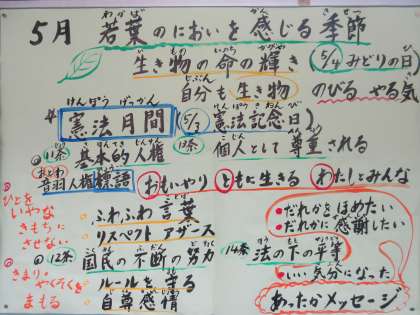 5月 若葉のにおいを感じる季節
生き物の命の輝き (5/4 みどりの日)
自分も生き物 のびる やる気
#憲法月間 (5/3 憲法記念日)
11条 基本的人権 13条 個人として尊重される
音羽人権標語 おもいやり ともに生きる わたしとみんな
ひとをいやなきもちにさせない
・ふわふわ言葉
・リスペクト アザース
12条 国民の不断の努力 14条 法の下の平等
・ルールを守る
・自尊感情
きまり・やくそくをまもる
・だれかをほめたい
・だれかに感謝したい
・いい気分になった
あったかメッセージ